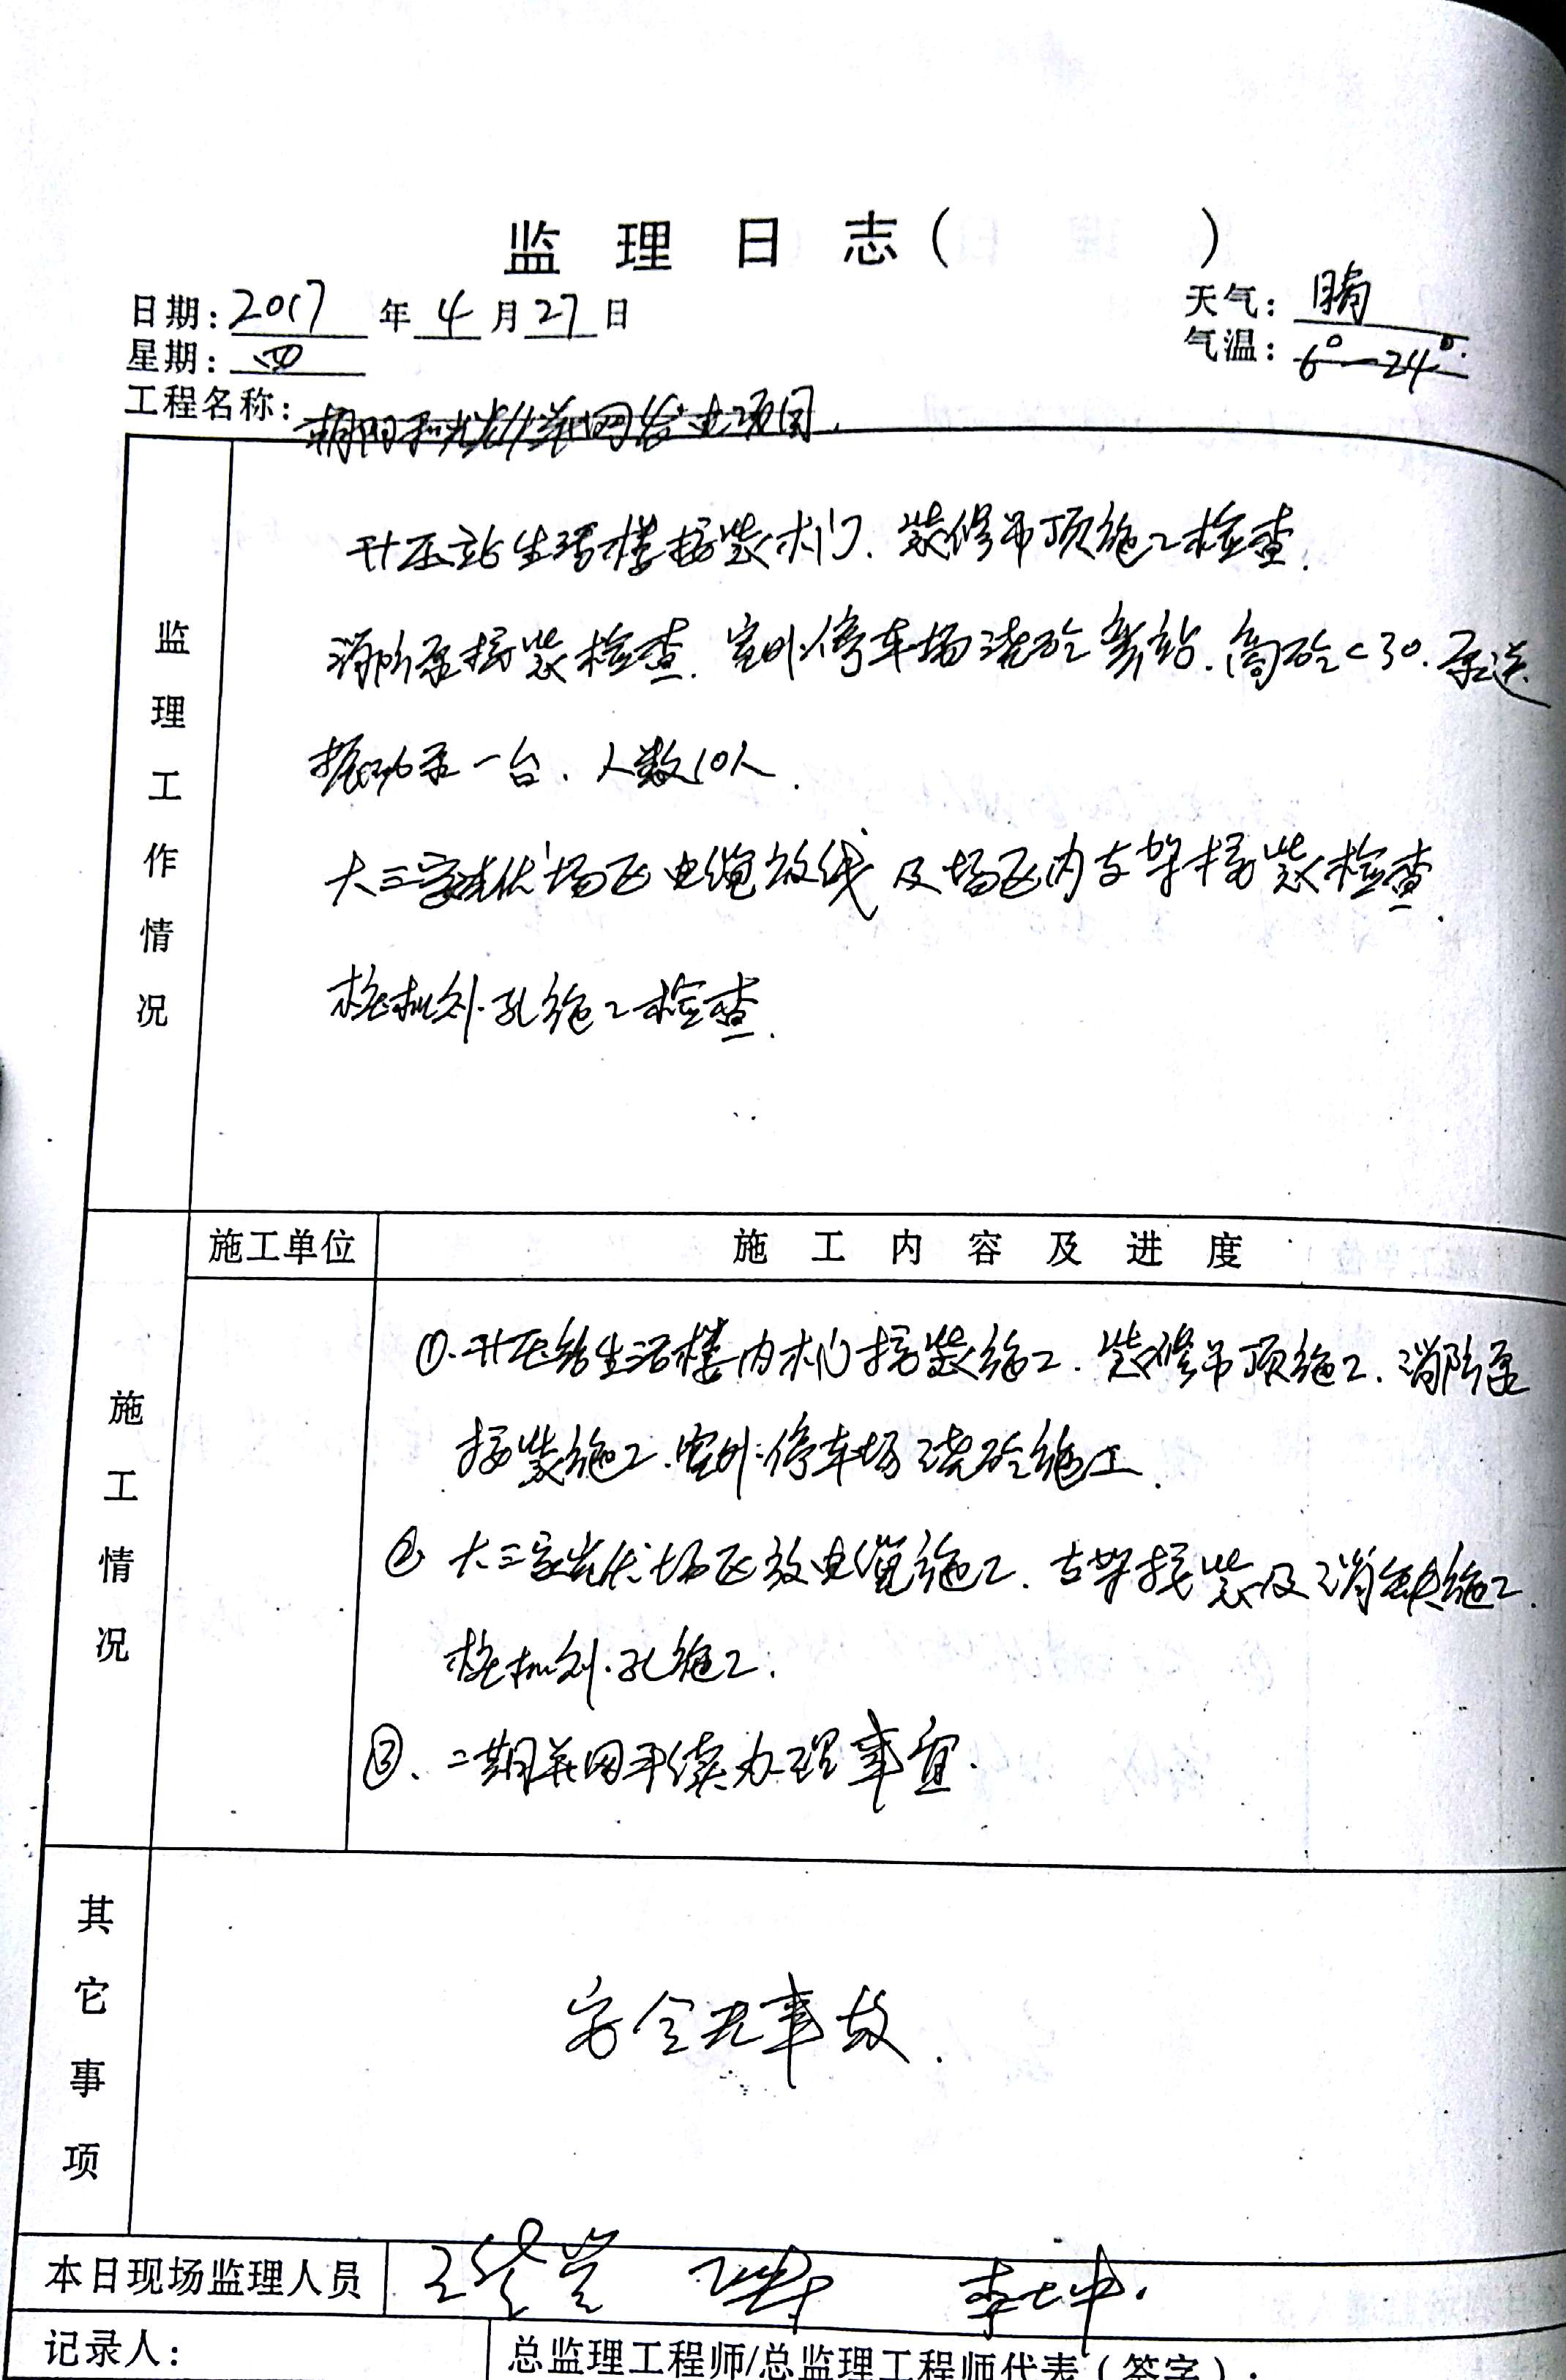 监理日志（ ）
日期：2017年4月27日
天气：晴
星期：四
气温：6°—24°.
工程名称：朝阳 并网发电项目.
监理工作情况
升压站生活楼按装木门.装修吊顶施工检查.
消防泵按装检查.室外停车场浇砼旁站.商砼C30.泵送
振动泵一台.人数10人.
大三家光伏场区电缆放线及场区内支架按装检查.
桩机引孔施工检查.
施工单位
施工内容及进度
施工情况
①.升压站生活楼内木门按装施工.装修吊顶施工.消防泵
按装施工.室外停车场浇砼施工.
② 大三家光伏场区放电缆施工.支架按装及消缺施工.
桩机引孔施工.
③.二期并网手续办理事宜.
其它事项
安全无事故.
本日现场监理人员
记录人：
总监理工程师/总监理工程师代表（签字）：